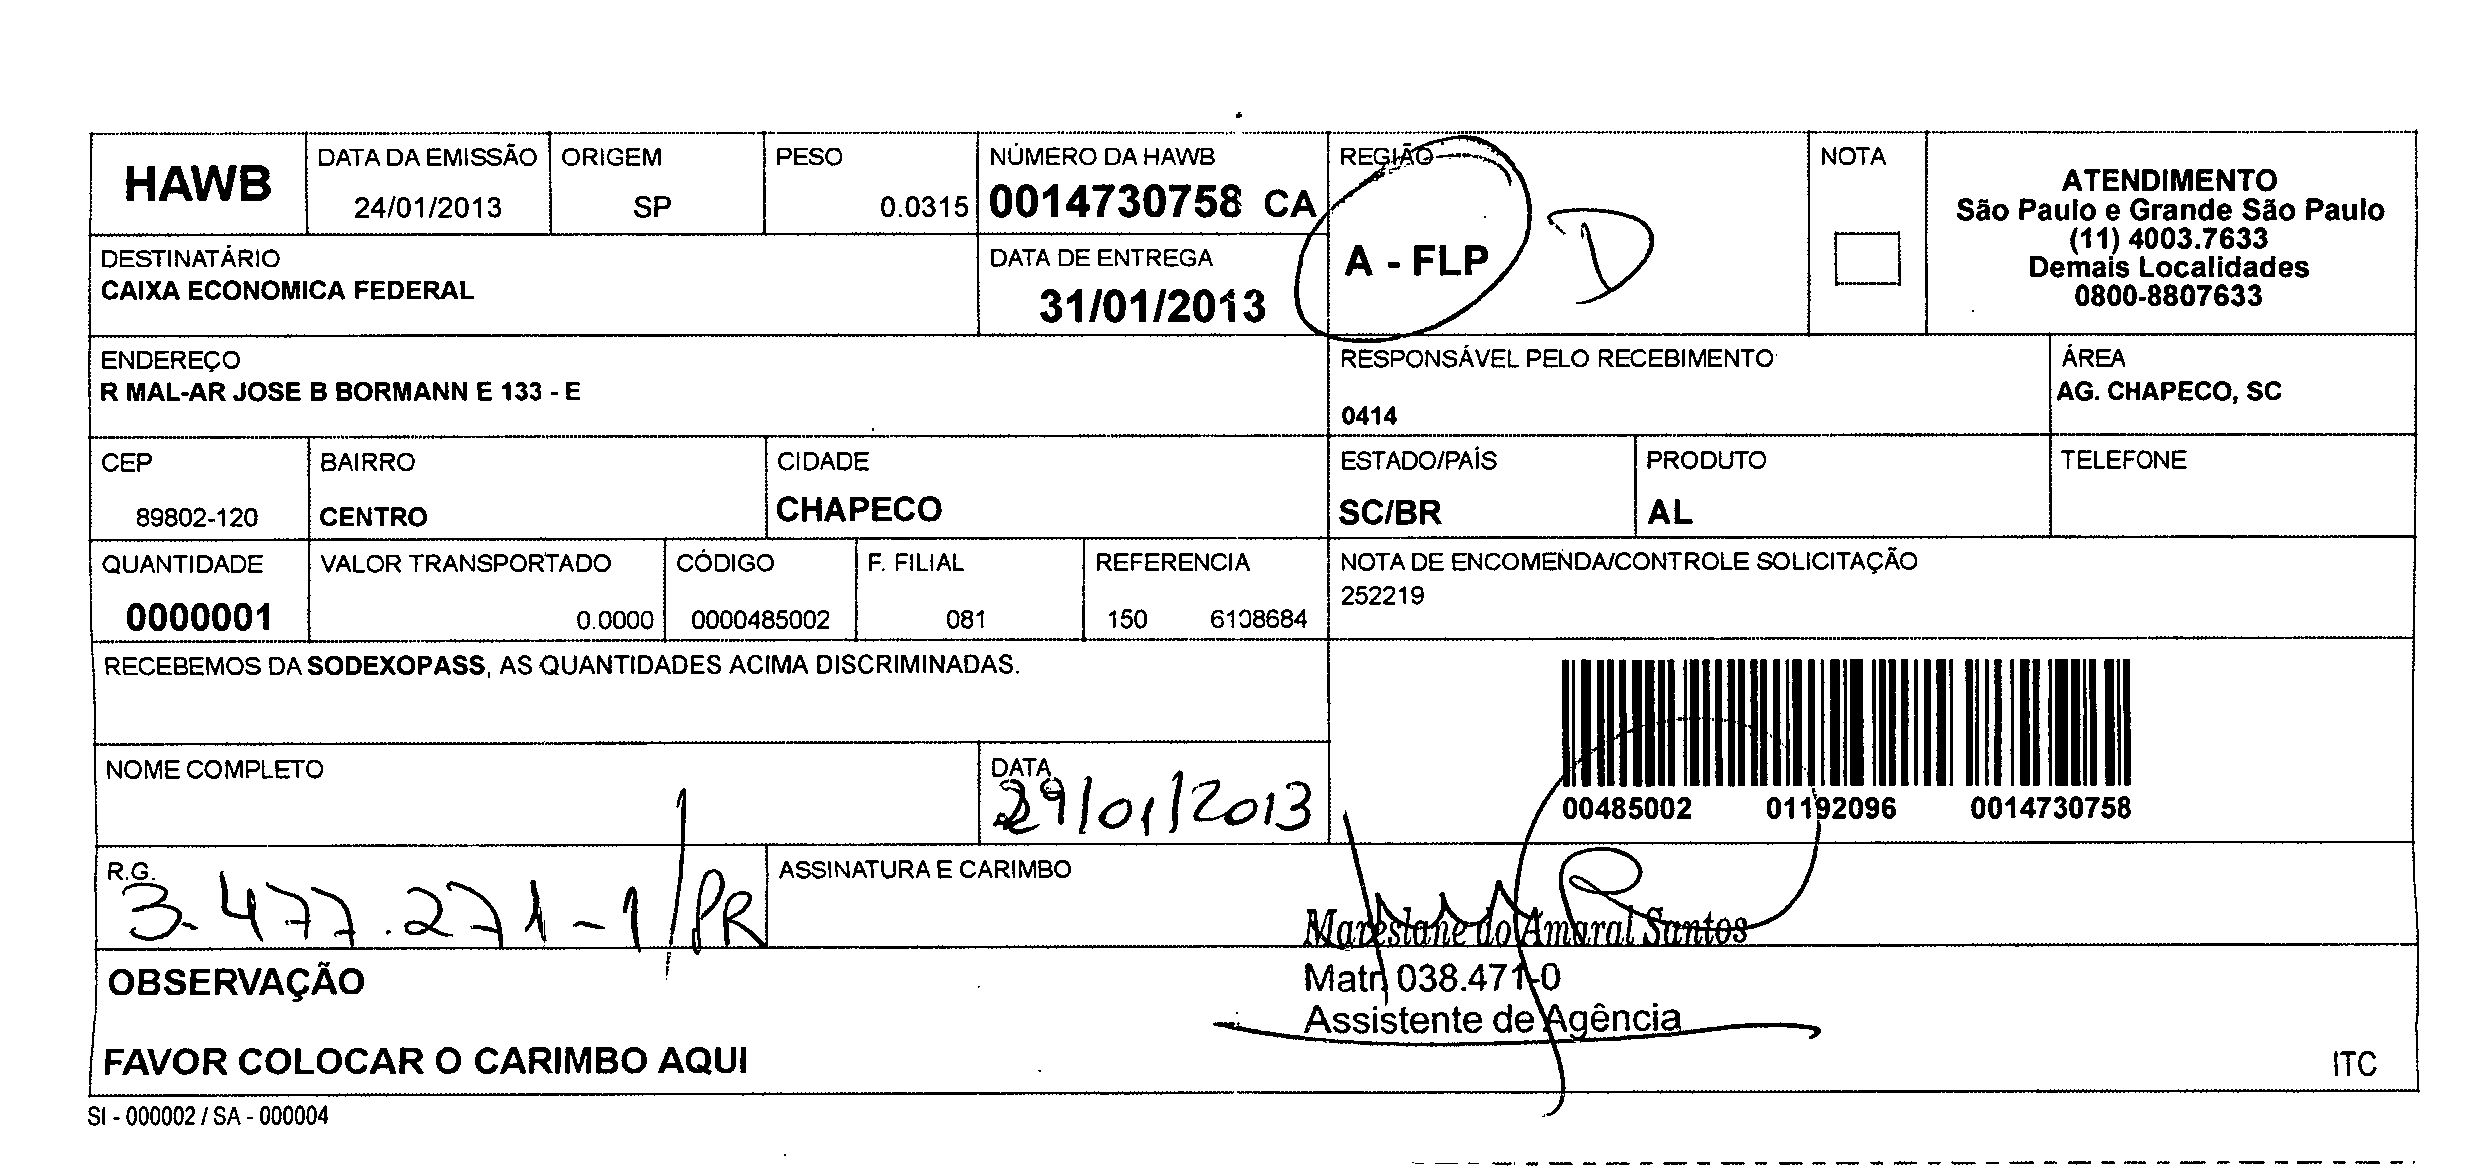 HAWB
DATA DA EMISSÃO
24/01/2013
ORIGEM
SP
PESO
0.0315
NÚMERO DA HAWB
0014730758 CA
REGIÃO
A - FLP
D
NOTA
ATENDIMENTO
São Paulo e Grande São Paulo
(11) 4003.7633
Demais Localidades
0800-8807633
DESTINATÁRIO
CAIXA ECONOMICA FEDERAL
DATA DE ENTREGA
31/01/2013
ENDEREÇO
R MAL-AR JOSE B BORMANN E 133 - E
RESPONSÁVEL PELO RECEBIMENTO
0414
ÁREA
AG. CHAPECO, SC
CEP
89802-120
BAIRRO
CENTRO
CIDADE
CHAPECO
ESTADO/PAÍS
SC/BR
PRODUTO
AL
TELEFONE
QUANTIDADE
0000001
VALOR TRANSPORTADO
0.0000
CÓDIGO
0000485002
F. FILIAL
081
REFERENCIA
150 6108684
NOTA DE ENCOMENDA/CONTROLE SOLICITAÇÃO
252219
RECEBEMOS DA SODEXOPASS, AS QUANTIDADES ACIMA DISCRIMINADAS.
00485002 01192096 0014730758
NOME COMPLETO
DATA
29/01/2013
R.G.
3.477.271-1/PR
ASSINATURA E CARIMBO
Mareslane do Amaral Santos
Matr. 038.471-0
Assistente de Agência
OBSERVAÇÃO
FAVOR COLOCAR O CARIMBO AQUI
ITC
SI - 000002 / SA - 000004